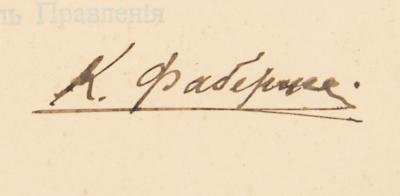 ль Правленія
К. Фаберже.